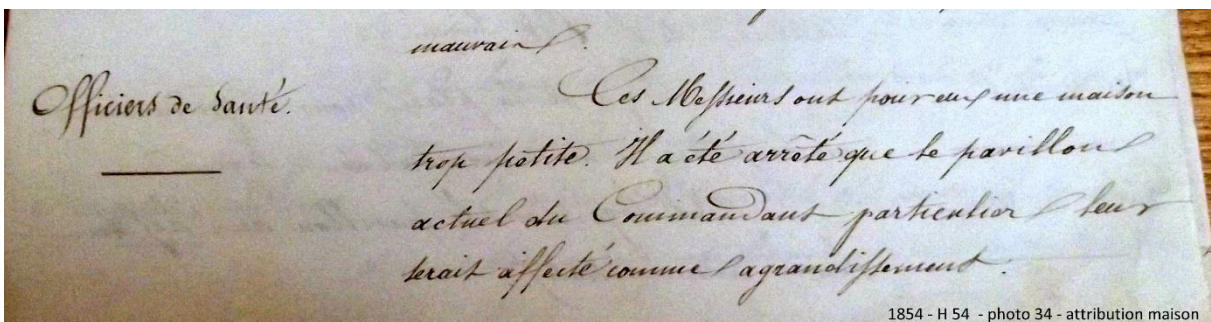 mauvais.
Officiers de Santé.
Ces Messieurs ont pour eux une maison
trop petite. Il a été arrêté que le pavillon
actuel du Commandant particulier leur
serait affecté comme agrandissement.
1854 - H 54 - photo 34 - attribution maison